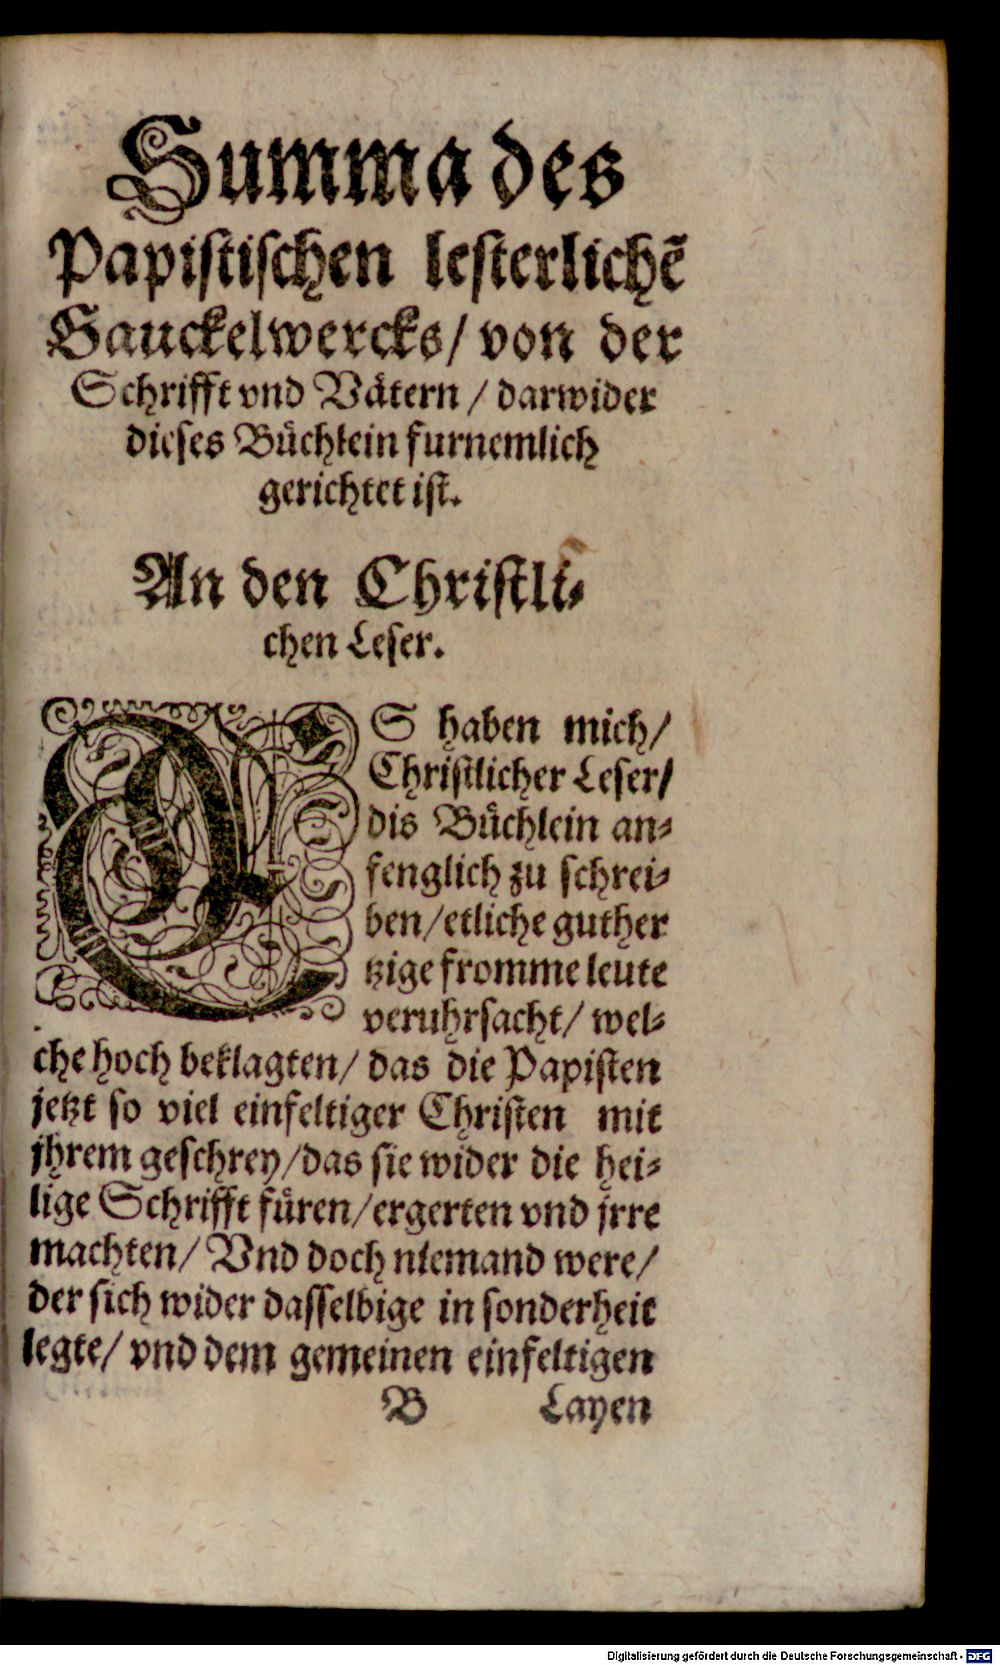 Summa des
Papistischen lesterlichẽ
Gauckelwercks/ von der
Schrifft vnd Vätern / darwider
dieses Büchlein furnemlich
gerichtet ist.
An den Christli-
chen Leser.
ES haben mich/
Christlicher Leser/
dis Büchlein an-
fenglich zu schrei-
ben/etliche guther
tzige fromme leute
veruhrsacht/ wel-
che hoch beklagten/ das die Papisten
jetzt so viel einfeltiger Christen mit
jhrem geschrey/das sie wider die hei-
lige Schrifft füren/ergerten vnd jrre
machten/ Vnd doch niemand were/
der sich wider dasselbige in sonderheit
legte/ vnd dem gemeinen einfeltigen
B Layen
Digitalisierung gefördert durch die Deutsche Forschungsgemeinschaft - DFG